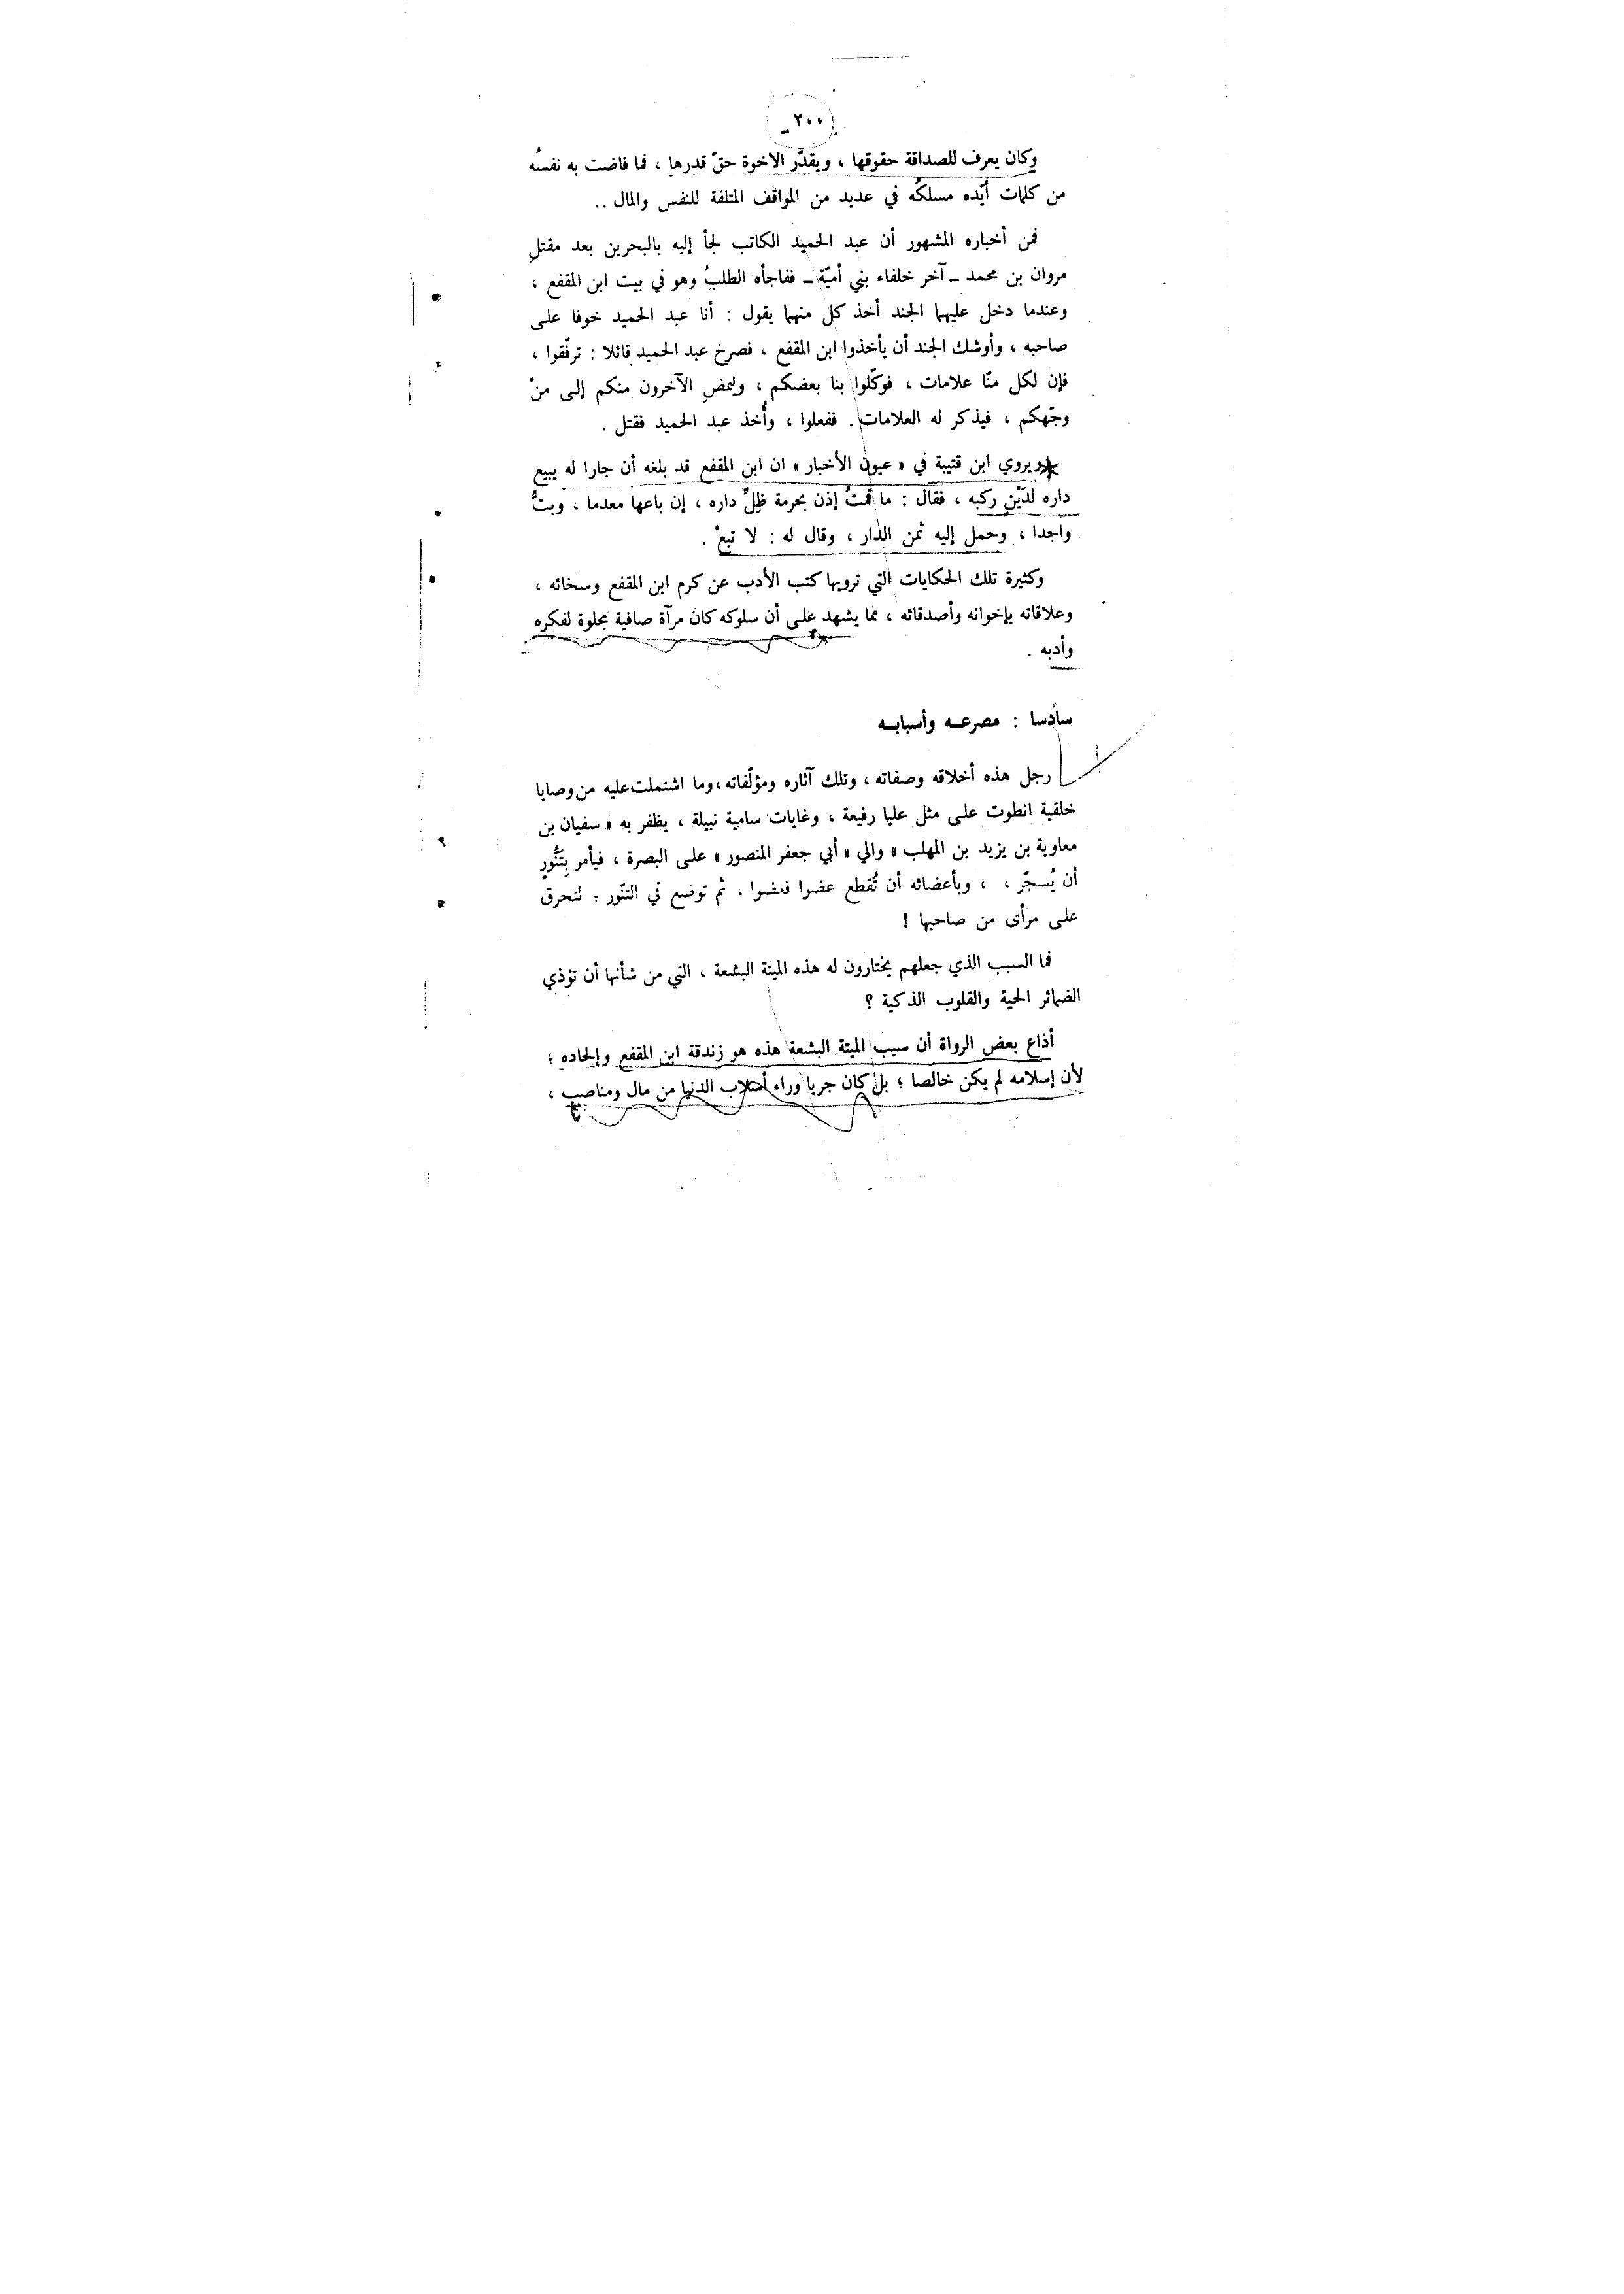 ٢٠٠ -
وكان يعرف للصداقة حقوقها ، ويقدّر الاخوة حقّ قدرها ، فما فاضت به نفسُه
من كلمات أيّده مسلكُه في عديد من المواقف المتلفة للنفس والمال ..
فمن أخباره المشهور أن عبد الحميد الكاتب لجأ إليه بالبحرين بعد مقتلِ
مروان بن محمد – آخر خلفاء بني أميّة – ففاجأه الطلبُ وهو في بيت ابن المقفع ،
وعندما دخل عليهما الجند أخذ كل منهما يقول : أنا عبد الحميد خوفا على
صاحبه ، وأوشك الجند أن يأخذوا ابن المقفع ، فصرخ عبد الحميد قائلا : ترفّقوا ،
فإن لكل منّا علامات ، فوكّلوا بنا بعضكم ، وليمضِ الآخرون منكم إلى منْ
وجّهكم ، فيذكر له العلامات . ففعلوا ، وأُخذ عبد الحميد فقتل .
ويروي ابن قتيبة في « عيون الأخبار » ان ابن المقفع قد بلغه أن جارا له يبيع
داره لدَيْنٍ ركبه ، فقال : ما قمتُ إذن بحرمة ظِلِّ داره ، إن باعها معدما ، وبتُّ
واجدا ، وحمل إليه ثمن الدار ، وقال له : لا تبعْ .
وكثيرة تلك الحكايات التي ترويها كتب الأدب عن كرم ابن المقفع وسخائه ،
وعلاقاته بإخوانه وأصدقائه ، مما يشهد على أن سلوكه كان مرآة صافية مجلوة لفكره
وأدبه .
سادسا : مصرعـه وأسبابـه
رجل هذه أخلاقه وصفاته ، وتلك آثاره ومؤلّفاته ، وما اشتملت عليه من وصايا
خلقية انطوت على مثل عليا رفيعة ، وغايات سامية نبيلة ، يظفر به « سفيان بن
معاوية بن يزيد بن المهلب » والي « أبي جعفر المنصور » على البصرة ، فيأمر بِتَنُّورٍ
أن يُسجّر ، ، وبأعضائه أن تُقطع عضوا فعضوا . ثم توضع في التنّور ; لتحرق
على مرأى من صاحبها !
فما السبب الذي جعلهم يختارون له هذه الميتة البشعة ، التي من شأنها أن تؤذي
الضمائر الحية والقلوب الذكية ؟
أذاع بعض الرواة أن سبب الميتة البشعة هذه هو زندقة ابن المقفع وإلحاده ؛
لأن إسلامه لم يكن خالصا ؛ بل كان جريا وراء أسلاب الدنيا من مال ومناصب ،